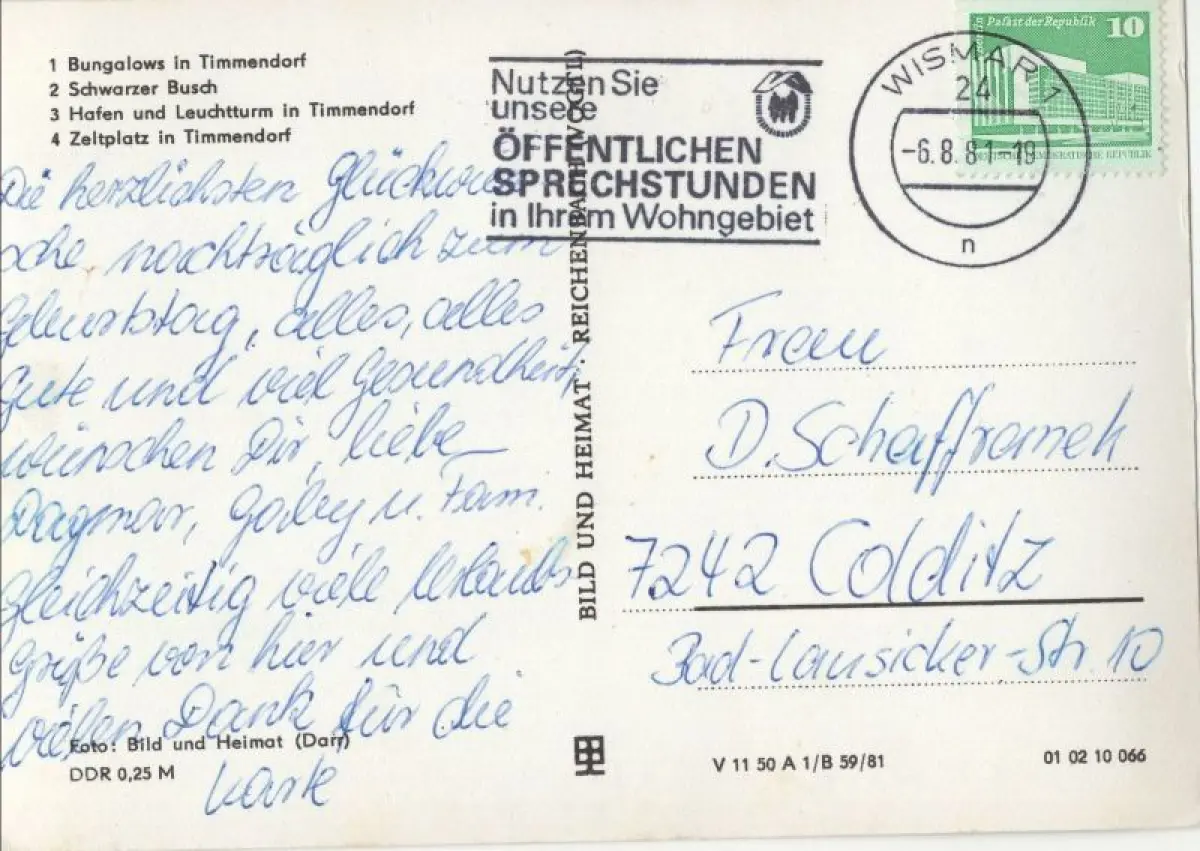 1 Bungalows in Timmendorf
2 Schwarzer Busch
3 Hafen und Leuchtturm in Timmendorf
4 Zeltplatz in Timmendorf
Die herzlichsten Glückwün
sche nachträglich zum
Geburtstag, alles, alles
Gute und viel Gesundheit,
wünschen Dir, liebe
Dagmar, Gaby u. Fam.
Gleichzeitig viele Urlaubs
grüße von hier und
vielen Dank für die
Karte
Foto: Bild und Heimat (Darr)
DDR 0,25 M
BILD UND HEIMAT · REICHENBACH (VOGTL)
Nutzen Sie
unsere
ÖFFENTLICHEN
SPRECHSTUNDEN
in Ihrem Wohngebiet
WISMAR 1
24
-6.8.81-19
n
Palast der Republik
10
DEUTSCHE DEMOKRATISCHE REPUBLIK
Frau
D. Schaffranek
7242 Colditz
Bad-Lausicker-Str. 10
V 11 50 A 1/B 59/81
01 02 10 066